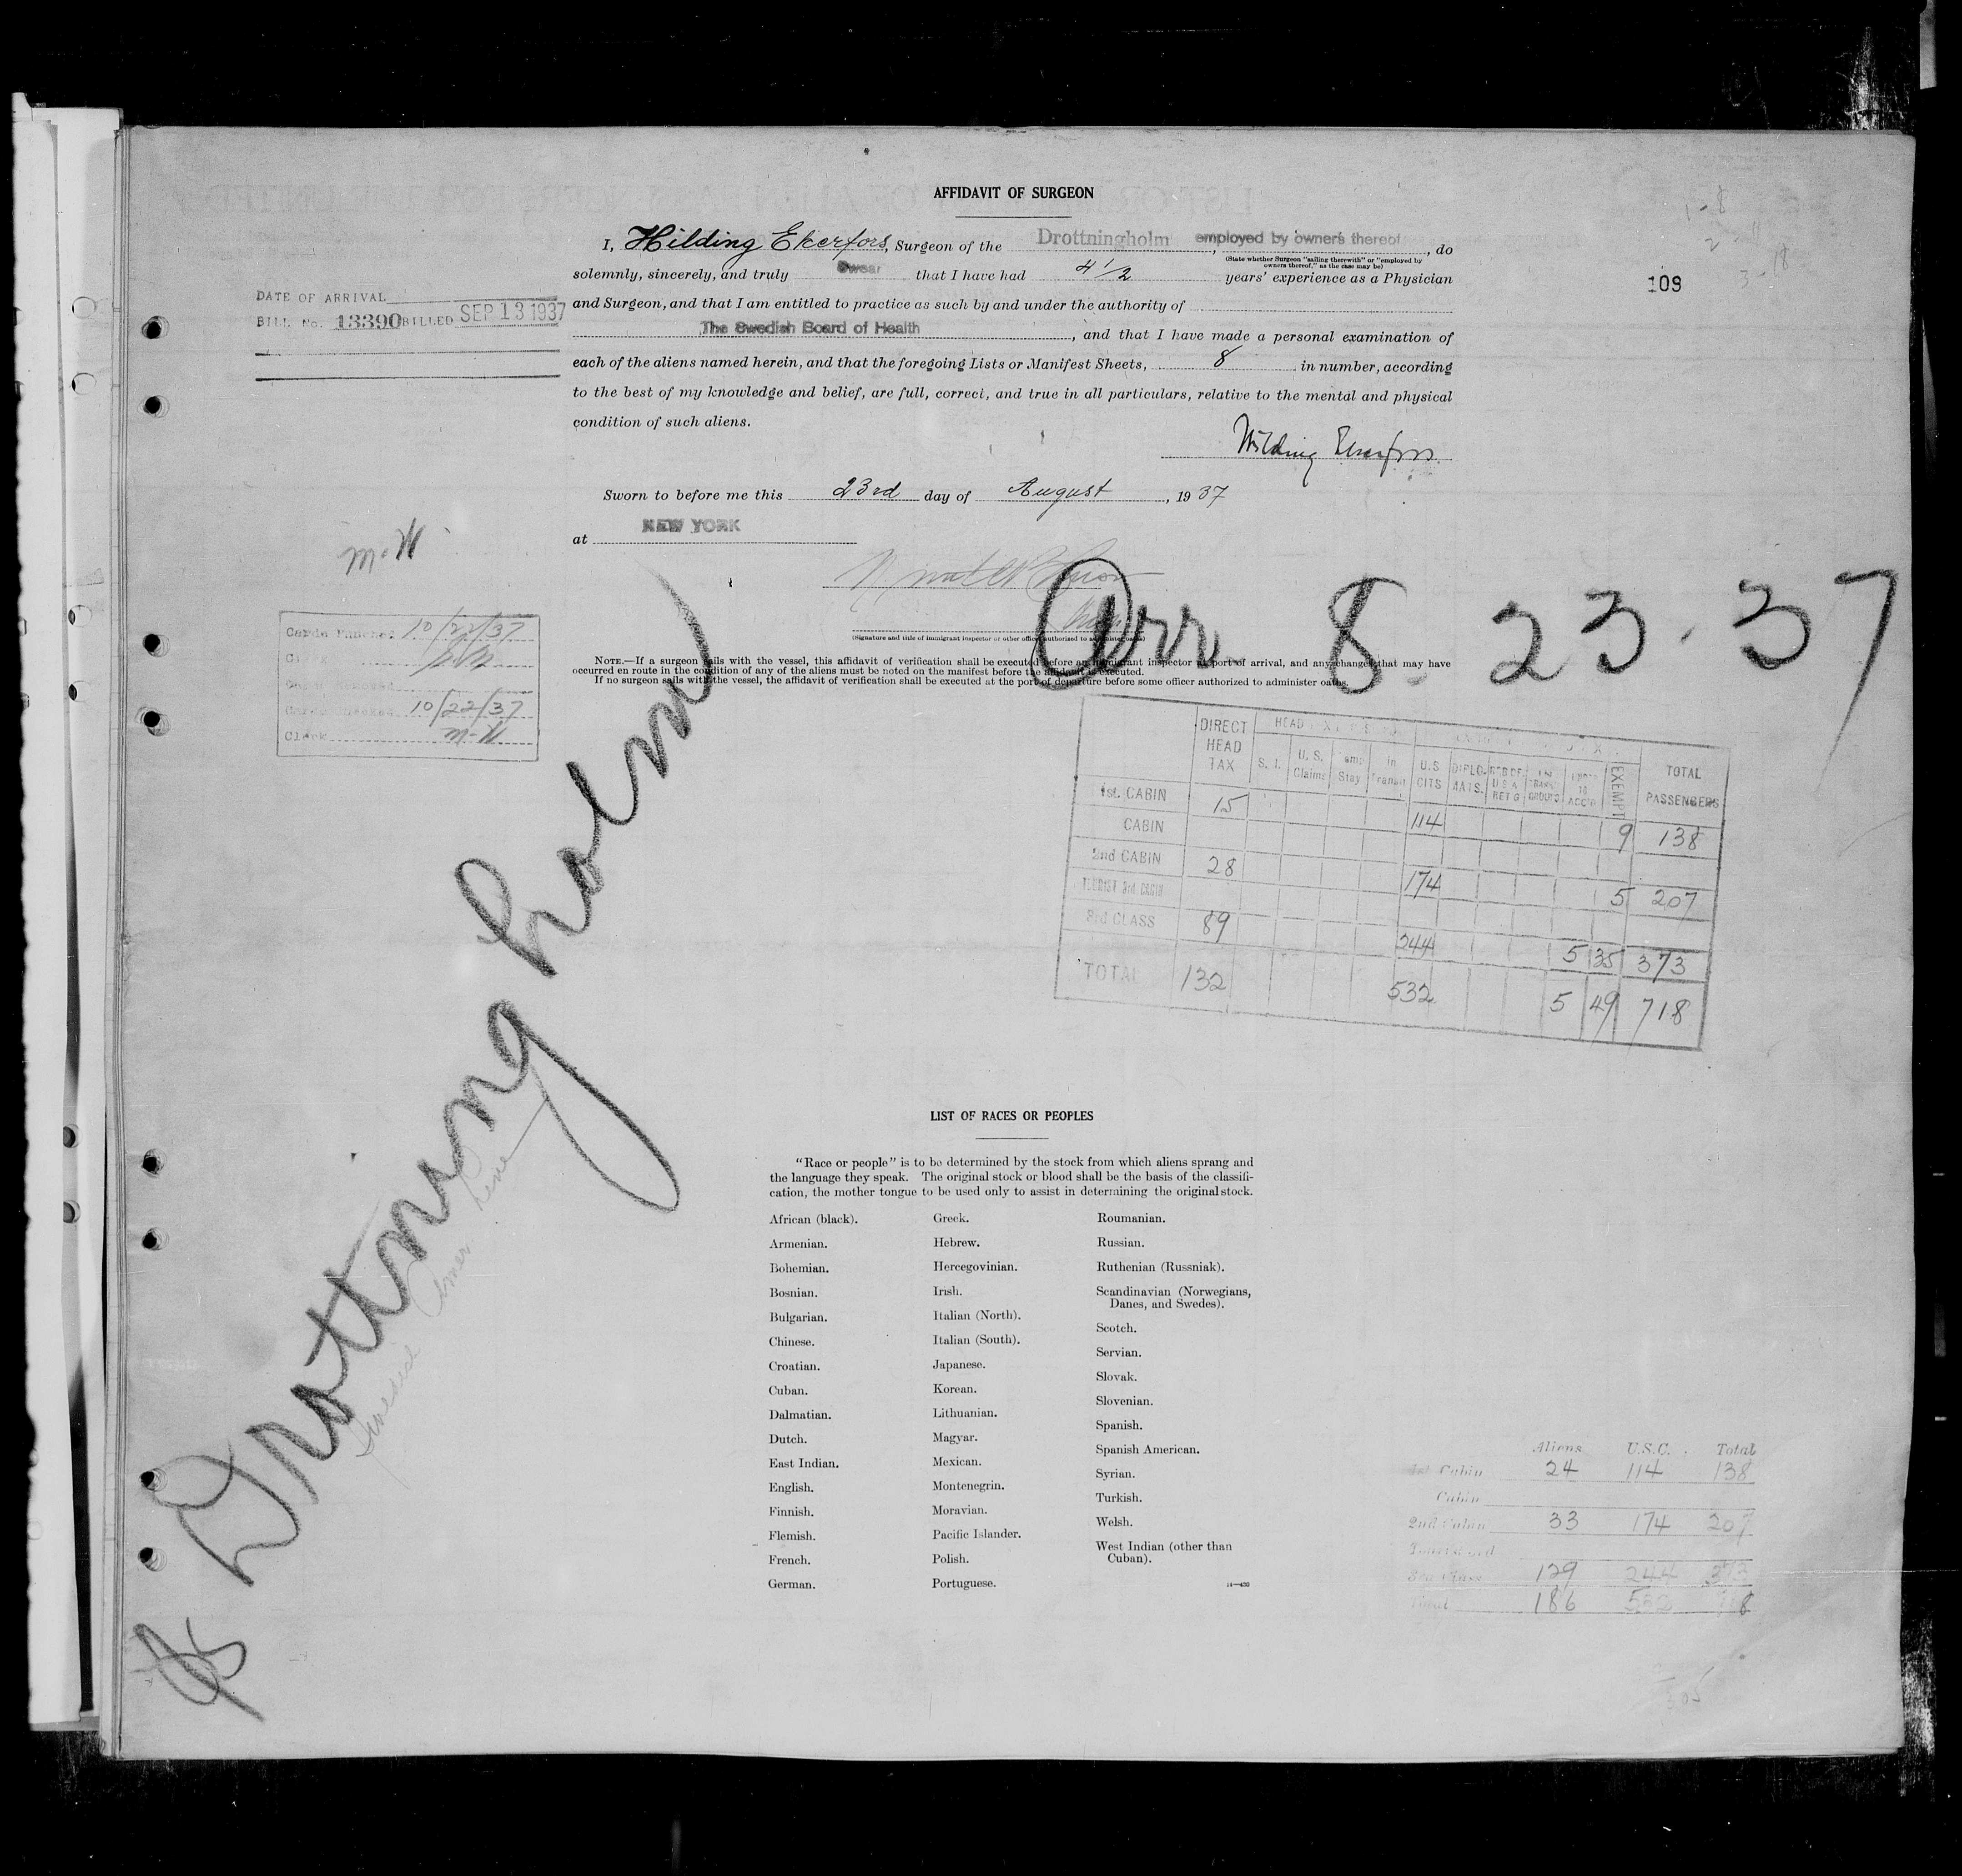 AFFIDAVIT OF SURGEON
I, Hilding Ekerfors, Surgeon of the Drottningholm, employed by owners thereof, do
(State whether Surgeon "sailing therewith" or "employed by
owners thereof," as the case may be)
solemnly, sincerely, and truly Swear that I have had 4 1/2 years' experience as a Physician
and Surgeon, and that I am entitled to practice as such by and under the authority of
The Swedish Board of Health, and that I have made a personal examination of
each of the aliens named herein, and that the foregoing Lists or Manifest Sheets, 8 in number, according
to the best of my knowledge and belief, are full, correct, and true in all particulars, relative to the mental and physical
condition of such aliens.
Hilding Ekerfors
Sworn to before me this 23rd day of August, 1937
at NEW YORK
(Signature and title of immigrant inspector or other officer authorized to
NOTE.—If a surgeon sails with the vessel, this affidavit of verification shall be executed before an immigrant inspector at port of arrival, and any changes that may have
occurred en route in the condition of any of the aliens must be noted on the manifest before the affidavit is executed.
If no surgeon sails with the vessel, the affidavit of verification shall be executed at the port of departure before some officer authorized to administer oaths.
DATE OF ARRIVAL
BILL No. 13390 BILLED SEP 13 1937
109
1-8
2-11
3-18
M-W
Cards Punched 10/22/37
Clerk
Cards Checked 10/22/37
Clerk M-W
Arr. 8-23-37
Drottningholm
Swedish Amer Line
DIRECT HEAD TAX
S. I.
U. S. Claims
Temp Stay
In Transit
U.S CITS
DIPLO-MATS.
EXEMPT
TOTAL PASSENGERS
1st. CABIN 15 114 9 138
CABIN
2nd CABIN 28 174 5 207
TOURIST 3rd. CABIN
3rd CLASS 89 244 5 35 373
TOTAL 132 532 5 49 718
LIST OF RACES OR PEOPLES
"Race or people" is to be determined by the stock from which aliens sprang and
the language they speak. The original stock or blood shall be the basis of the classifi-
cation, the mother tongue to be used only to assist in determining the original stock.
African (black).
Armenian.
Bohemian.
Bosnian.
Bulgarian.
Chinese.
Croatian.
Cuban.
Dalmatian.
Dutch.
East Indian.
English.
Finnish.
Flemish.
French.
German.
Greek.
Hebrew.
Hercegovinian.
Irish.
Italian (North).
Italian (South).
Japanese.
Korean.
Lithuanian.
Magyar.
Mexican.
Montenegrin.
Moravian.
Pacific Islander.
Polish.
Portuguese.
Roumanian.
Russian.
Ruthenian (Russniak).
Scandinavian (Norwegians,
Danes, and Swedes).
Scotch.
Servian.
Slovak.
Slovenian.
Spanish.
Spanish American.
Syrian.
Turkish.
Welsh.
West Indian (other than
Cuban).
14—430
Aliens U.S.C. Total
1st Cabin 24 114 138
Cabin
2nd Cabin 33 174 207
3rd Class 129 244 373
Total 186 532 718